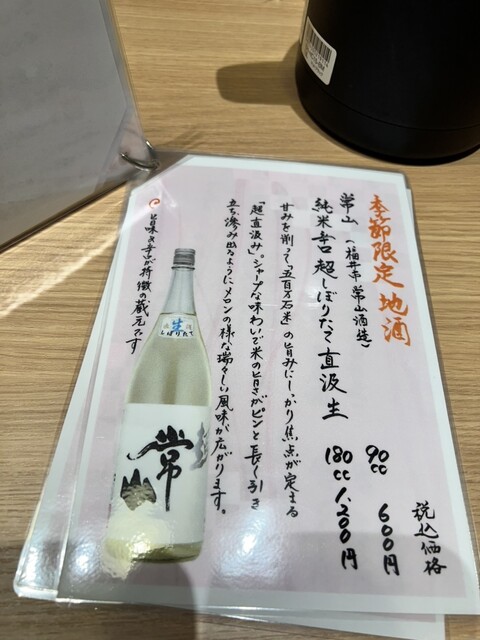 季節限定 地酒
常山 (福井市 常山酒造)
純米辛口 超しぼりたて 直汲 生
90cc 600円
180cc 1,200円
税込価格
甘みを削って「五百万石米」の旨みにしっかり焦点が定まる
「超直汲み」。シャープな味わいで米の旨さがピンと長く引き
立ち滲み出るようにメロンの様な瑞々しい風味が広がります。
旨味き辛口が特徴の蔵元です
生
しぼりたて
常山